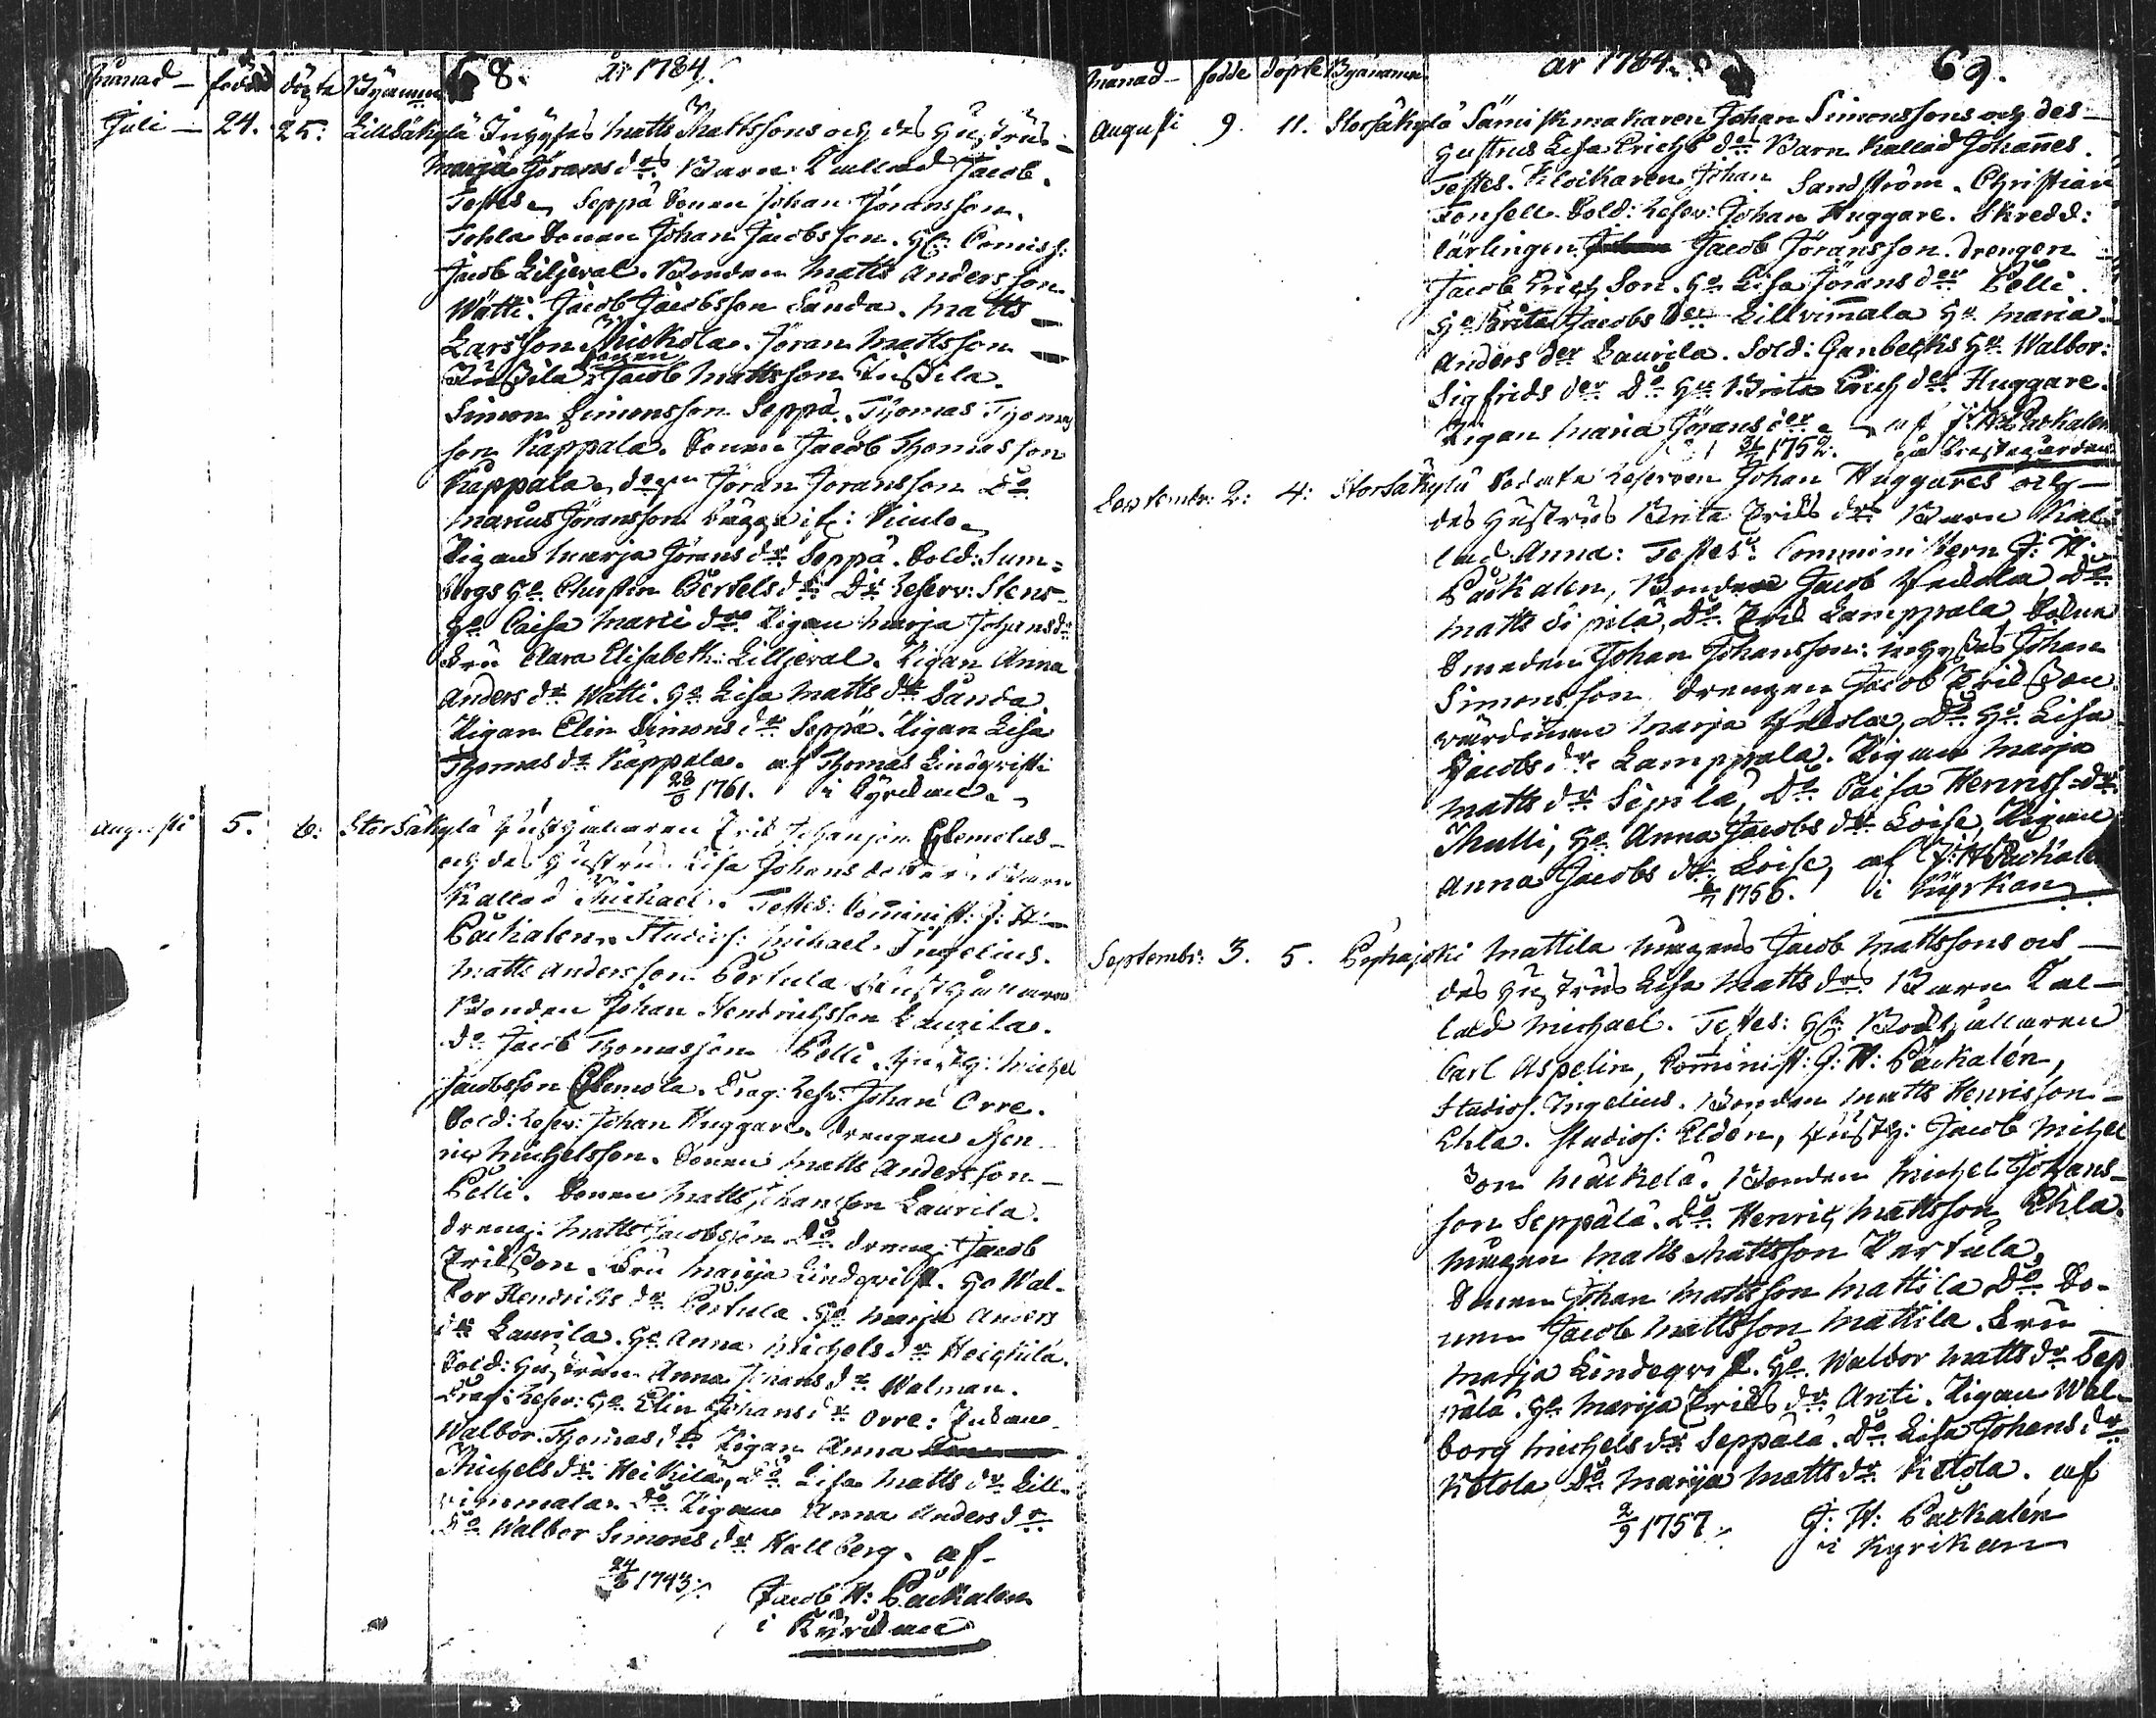 Månad — födde döpta Byamnen 68. år 1784.
Juli — 24. 25: Lillsäkylä Inhyses Matts Mattssons och des hustrus
Maria Jörans drs Barn Kallad Jacob.
Testes, Seppä Sonen Johan Jöransson.
Tohla Sonen Johan Jacobsson. Hr Comiss:
Jacob Liljeval. Bonden Matts Andersson
Wätti. Jacob Jacobsson Sanda. Matts
Larsson Mickola. Jöran Mattsson
Sonen
Jacob Mattsson
Simon Simonsson Seppä. Thomas Thomas
son Kappala. Sonen Jacob Thomasson
Kappala, dreng Jöran Jöransson Do
Marcus Jöransson
Pigan Marja Jörans dr Seppä. Sold: Sum=
bergs Ho Christin Bertels dr Do Reserv: Stens
Ho Caisa Marci dr Pigan Marja Johans dr
Fru Clara Elisabeth Liljeval. Pigan Anna
Anders dr Wätti. Ho Lisa Matts dr Sanda
Pigan Elin Simons dr Seppä. Pigan Lisa
Thomas dr Kappala. af Thomas Lindqvist
1761. i Kyrckan.
Augusti 5. 6: Storsäkylä Husthållaren Eric Johansson Clemolas
och des hustrus Lisa Johans dotters Barn
Kallad Michael. Testes: Cominist: J: H:
Packalen. Studios: Michael Ingelius.
Matts Andersson Pertula Husthållaren
Bonden Johan Hendrichsson Laurila.
Do Jacob Thomasson Pelli. Husth: Michel
Jacobsson Clemola. Drag: Resv: Johan Orre.
Sold: Reser: Johan Huggare. Drengen Hen
ric Michelsson. Sonen Matts Andersson
Pelli. Sonen Matts Johansson Laurila.
dreng: Matts Jacobsson Do dreng: Jacob
Ericsson. Fru Marija Lindqvist. Ho Wal-
bor Hendrichs dr Pertula. Ho Marija Anders
dr Laurila. Ho Anna Michels dr Heickilä.
Sold: hustrun Anna Johans dr Walman.
Drag: Reser: Ho Elin Johans dr Orre:
Walbor Thomas dr Pigan Anna
Michels dr Heikilä, Do Lisa Matts dr Lill-
vimmala. Do Pigan Anna Anders dr
Do Walbor Simons dr Hallberg. af
1743. Jacob H: Packalen
i Kyrckan
Månad — födde döpte Byanamn år 1784. 69.
Augusti 9. 11. Storsäkylä Sämiskmakaren Johan Simonssons och des
Hustrus Lisa Erichs drs Barn Kallad Johannes.
Testes. Klockaren Johan Sandström. Christian
Fonsell. Sold: Reser: Johan Huggare. Skredd:
lärlingen Jacob Jöransson. Drengen
Jacob Erich Son. Ho Lisa Jörans der Pelli.
Ho Brita Jacobs der Lillvimmala Ho Maria
Anders der Laurila. Sold: Ganbecks Ho Walbor:
Sigfrids der Do Ho Brita Erich der Huggare.
Pigan Maria Jörans der af J: H: Packalen
1752. på Prestegården
Septembr: 2: 4: Storsäkylä Soldate Reserven Johan Huggares och
des Hustrus Brita Erics drs Barn Kal-
lad Anna: Testes: Comministern J: H:
Packalen, Bonden Jacob Do
Matts Sipilä, Do Eric Lamppala,
Smeden Johan Johansson: inhyses Johan
Simonsson drengen Jacob Ericsson
värdinnan Marja Do Ho Lisa
Jacobs dr Lamppala. Pigan Marja
Matts dr Sipilä, Do Caisa Henrics dr
Mulli, Ho Anna Jacobs dr Loise, Pigan
Anna Jacobs dr Loise, af J: H: Packalen
1756. i Kyrkan
Septembr: 3. 5. Pyhäjoki Mattila Mågens Jacob Mattssons och
des Hustrus Lisa Matts drs Barn Kal-
lad Michael. Testes: Hr Bokhållaren
Carl Aspelin, Cominist: J: H: Packalén,
Studios. Ingelius. Bonden Matts Henrisson
Ehla. Studios: Elden, Husth: Jacob Michel
son Mäckelä. Bonden Michel Johans-
son Seppälä. Do Henric Mattsson Ehla.
Mågen Matts Mattsson Kertula,
Sonen Johan Mattsson Mattila Do So-
nen Jacob Mattsson Mattila. Fru
Marja Lindeqvist. Ho Walbor Matts dr Sep
pälä. Ho Marija Erics dr Anti. Pigan Wal-
borg Michels dr Seppälä. Do Lisa Johans dr
Ketola Do Marija Matts dr Ketola. af
2/9 1757. J: H: Packalén
i Kyrikan